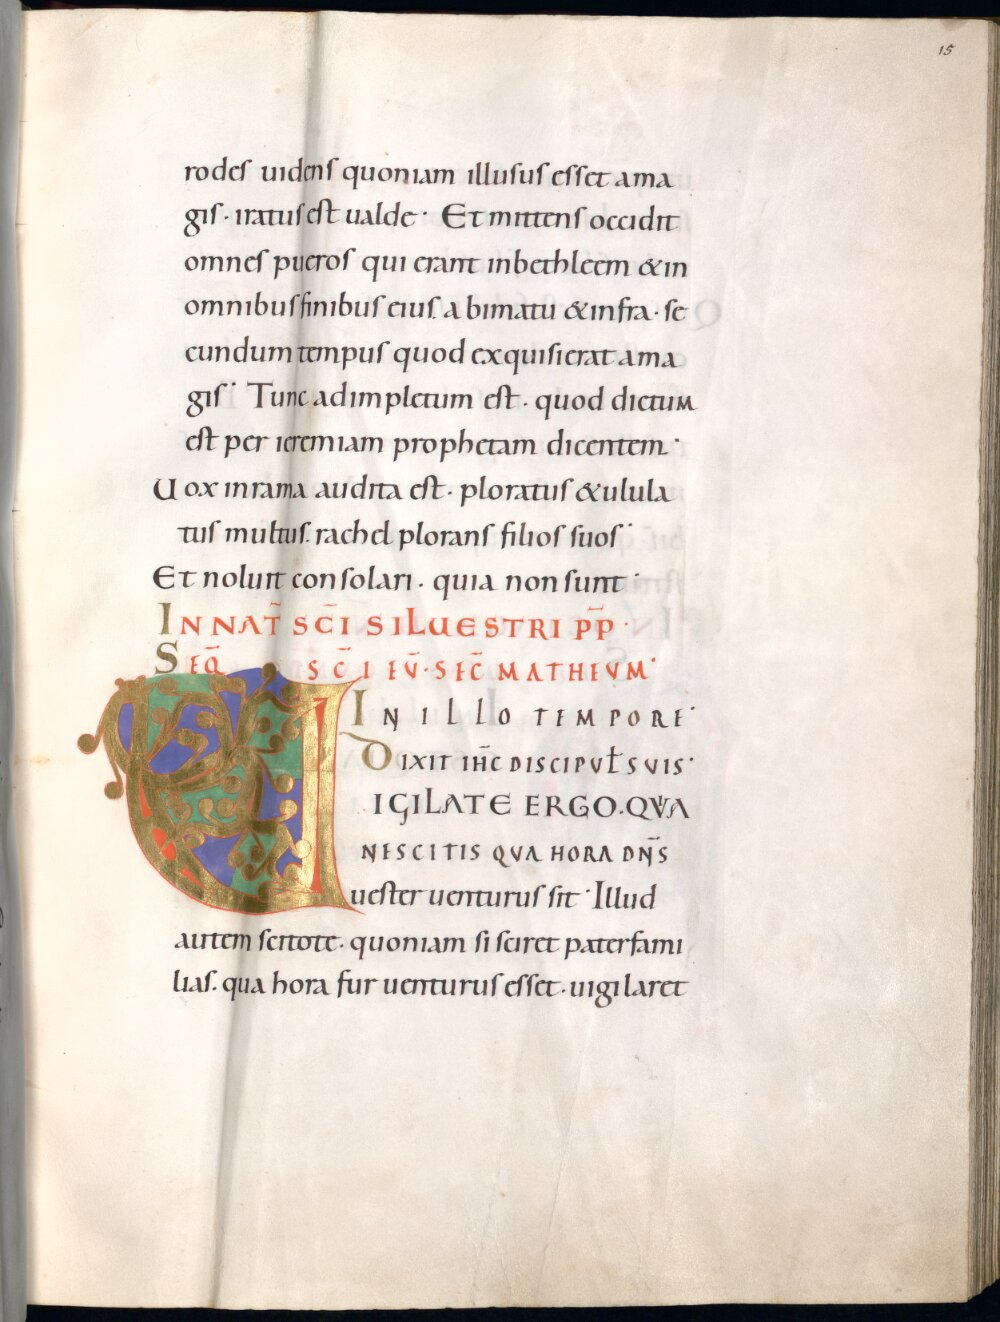 15
rodes uidens quoniam illusus esset a ma
gis · iratus est ualde · Et mittens occidit
omnes pueros qui erant in bethleem & in
omnibus finibus eius a bimatu & infra · se
cundum tempus quod exquisierat a ma
gis · Tunc adimpletum est · quod dictum
est per ieremiam prophetam dicentem ·
Uox in rama audita est · ploratus & ulula
tus multus . rachel plorans filios suos ·
Et noluit consolari · quia non sunt ·
IN NAT̄ SC̄I SILUESTRI P̄P ·
SEQ̄ SC̄I EŪ · SEC̄ MATHEUM ·
IN ILLO TEMPORE ·
DIXIT IH̄C DISCIPUŁ SUIS ·
UIGILATE ERGO · QUIA
NESCITIS QUA HORA DN̄S
uester uenturus sit · Illud
autem scitote · quoniam si sciret paterfami
lias . qua hora fur uenturus esset · uigilaret